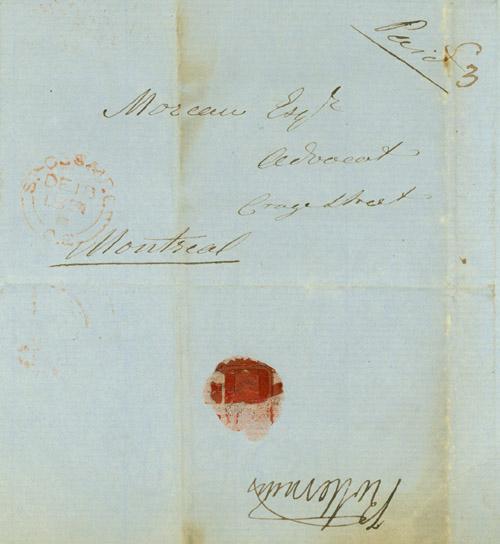 Paid 3
Moreau Esqr
Advocat
Crage Street
Montreal
DE 10